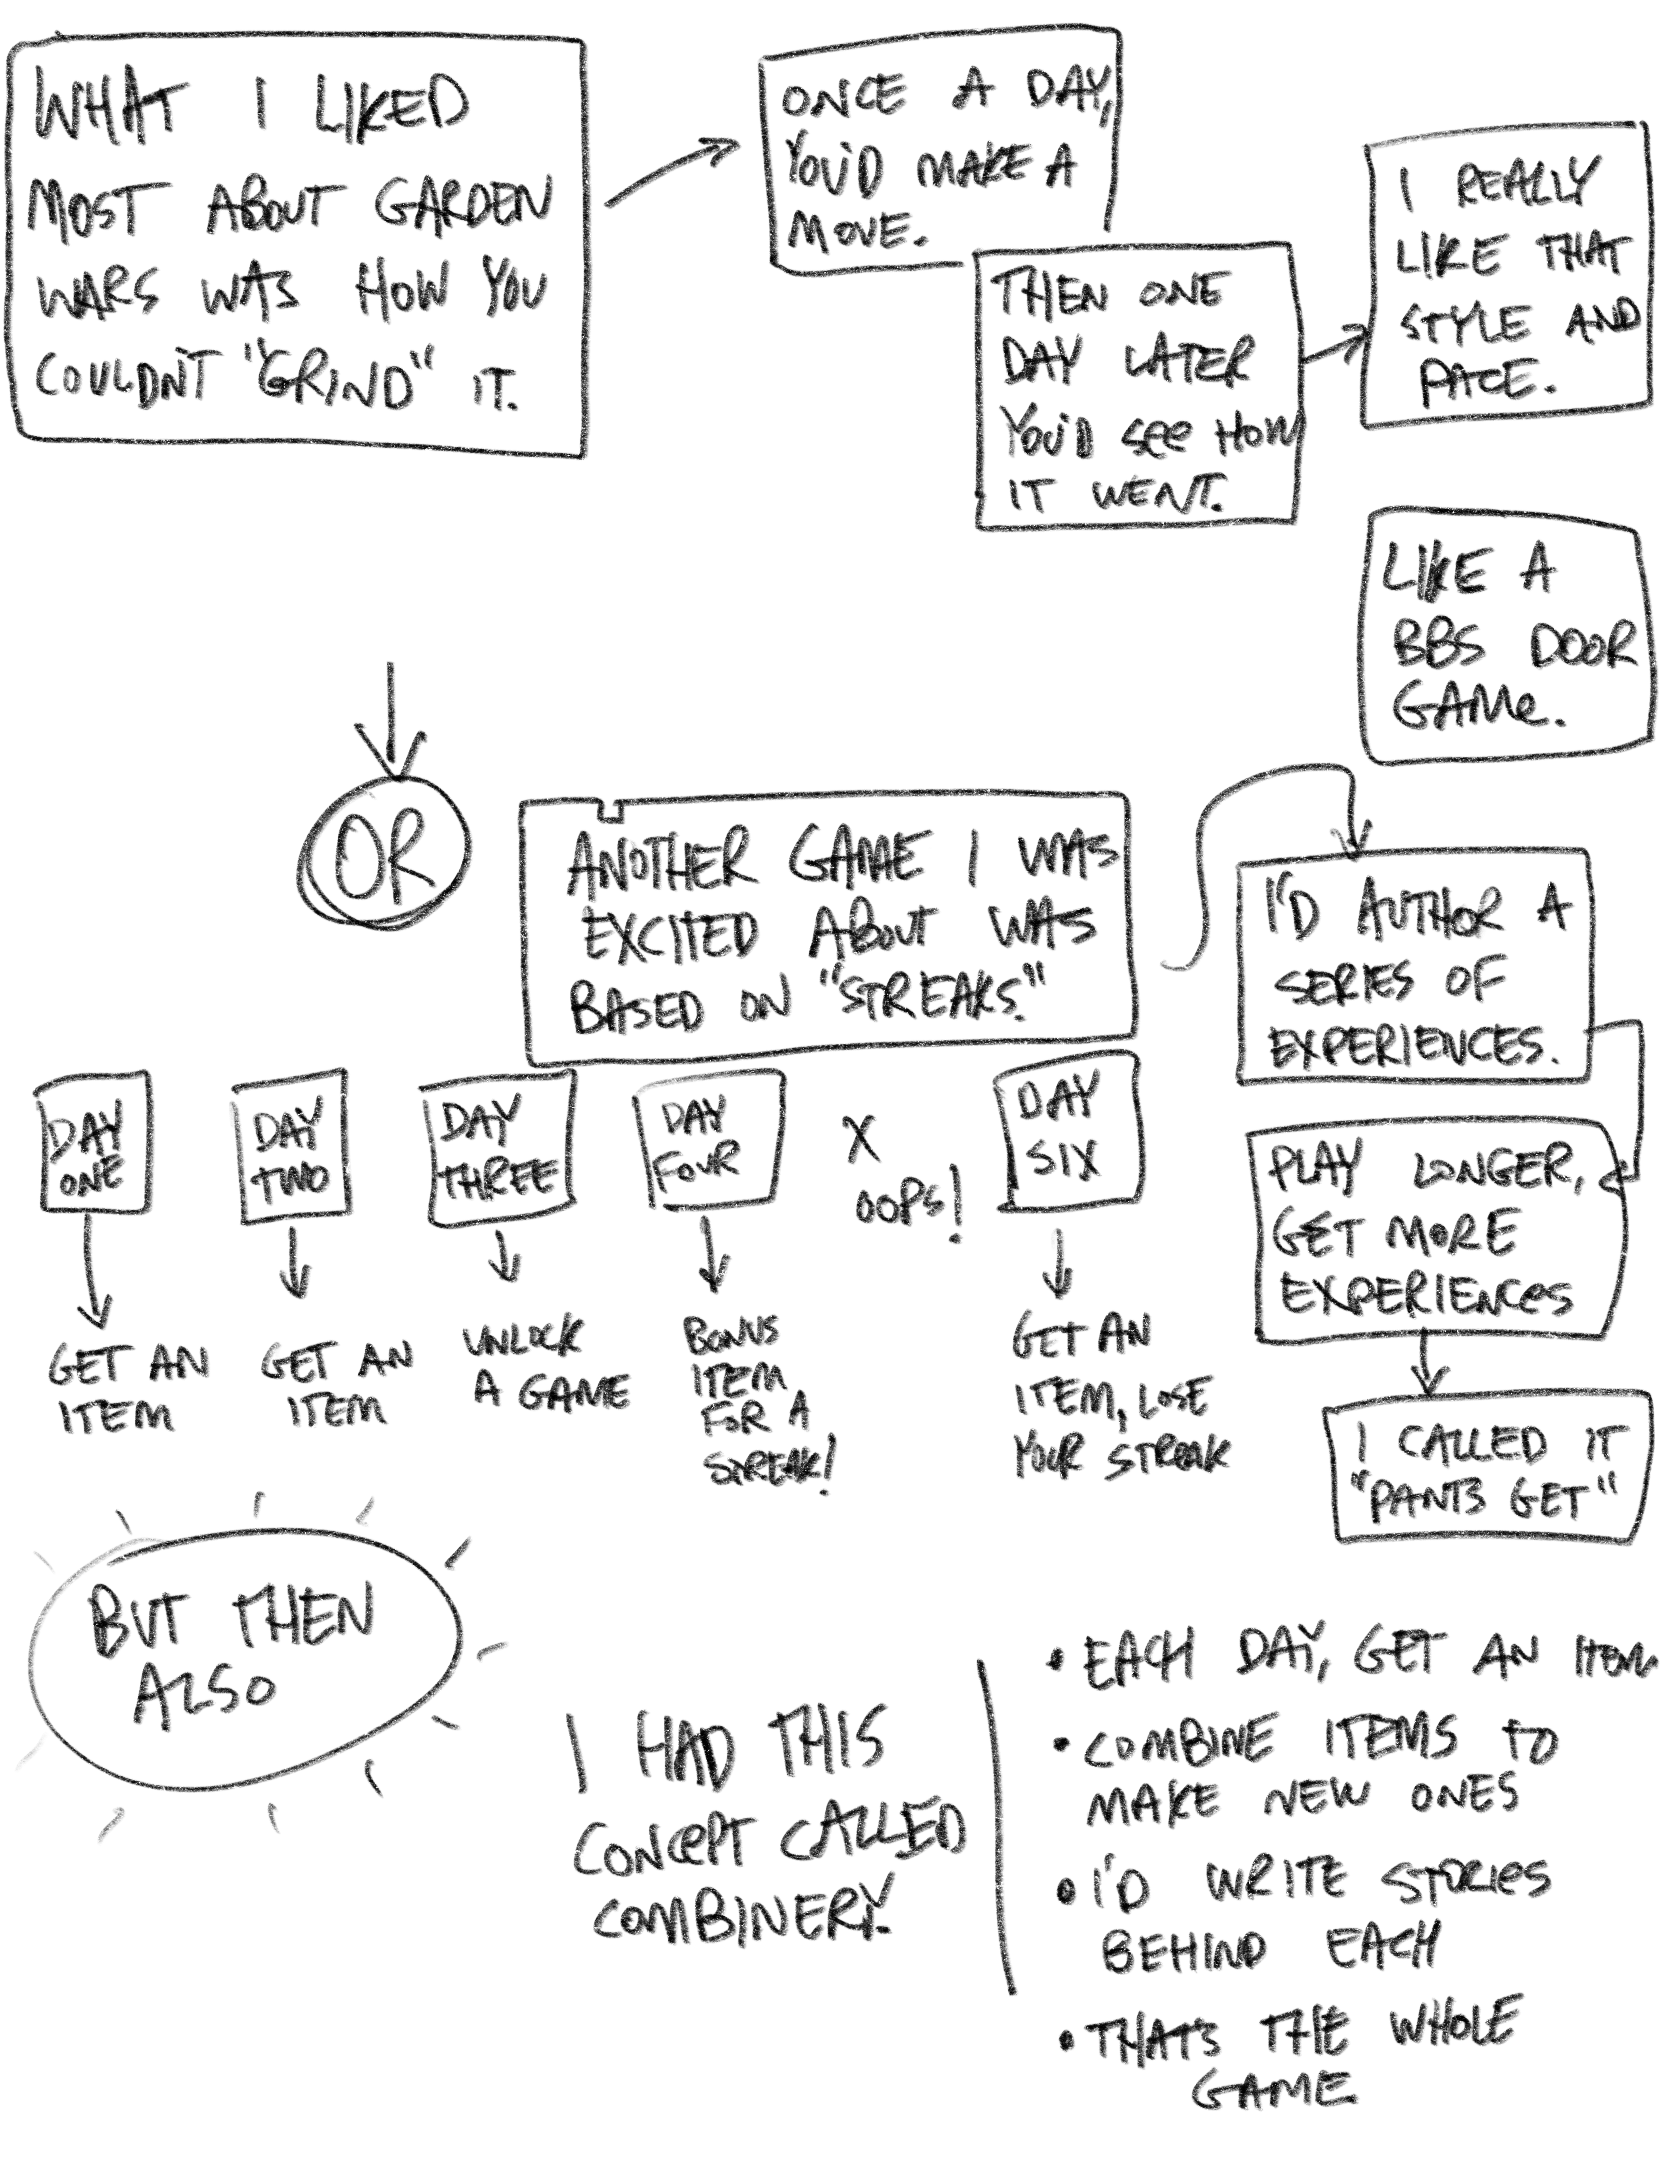 WHAT I LIKED
MOST ABOUT GARDEN
WARS WAS HOW YOU
COULDN'T "GRIND" IT.
ONCE A DAY,
YOU'D MAKE A
MOVE.
THEN ONE
DAY LATER
YOU'D SEE HOW
IT WENT.
I REALLY
LIKE THAT
STYLE AND
PACE.
LIKE A
BBS DOOR
GAME.
OR
ANOTHER GAME I WAS
EXCITED ABOUT WAS
BASED ON "STREAKS."
I'D AUTHOR A
SERIES OF
EXPERIENCES.
PLAY LONGER,
GET MORE
EXPERIENCES
I CALLED IT
"PANTS GET"
DAY
ONE
GET AN
ITEM
DAY
TWO
GET AN
ITEM
DAY
THREE
UNLOCK
A GAME
DAY
FOUR
BONUS
ITEM
FOR A
STREAK!
X
OOPS!
DAY
SIX
GET AN
ITEM, LOSE
YOUR STREAK
BUT THEN
ALSO
I HAD THIS
CONCEPT CALLED
COMBINERY.
• EACH DAY, GET AN ITEM
• COMBINE ITEMS TO
MAKE NEW ONES
• I'D WRITE STORIES
BEHIND EACH
• THAT'S THE WHOLE
GAME